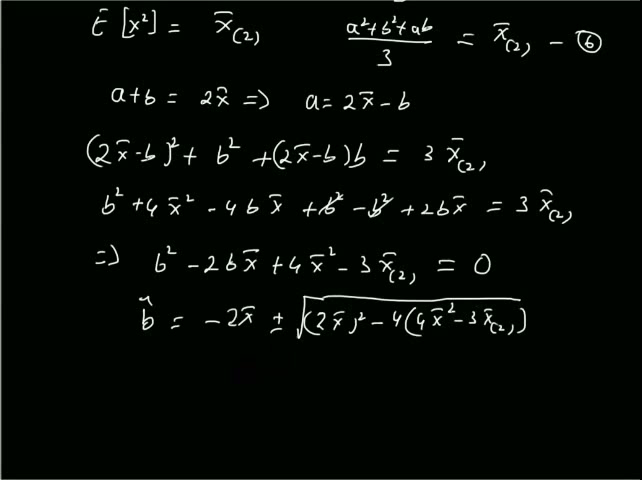 E [x²] = x̄₍₂₎   (a²+b²+ab)/3 = x̄₍₂₎ - ⑥
a+b = 2x̄ => a = 2x̄ - b
(2x̄-b)² + b² + (2x̄-b)b = 3 x̄₍₂₎
b² + 4x̄² - 4bx̄ + b² - b² + 2bx̄ = 3 x̄₍₂₎
=> b² - 2bx̄ + 4x̄² - 3x̄₍₂₎ = 0
b̂ = -2x̄ ± √((2x̄)² - 4(4x̄² - 3x̄₍₂₎)